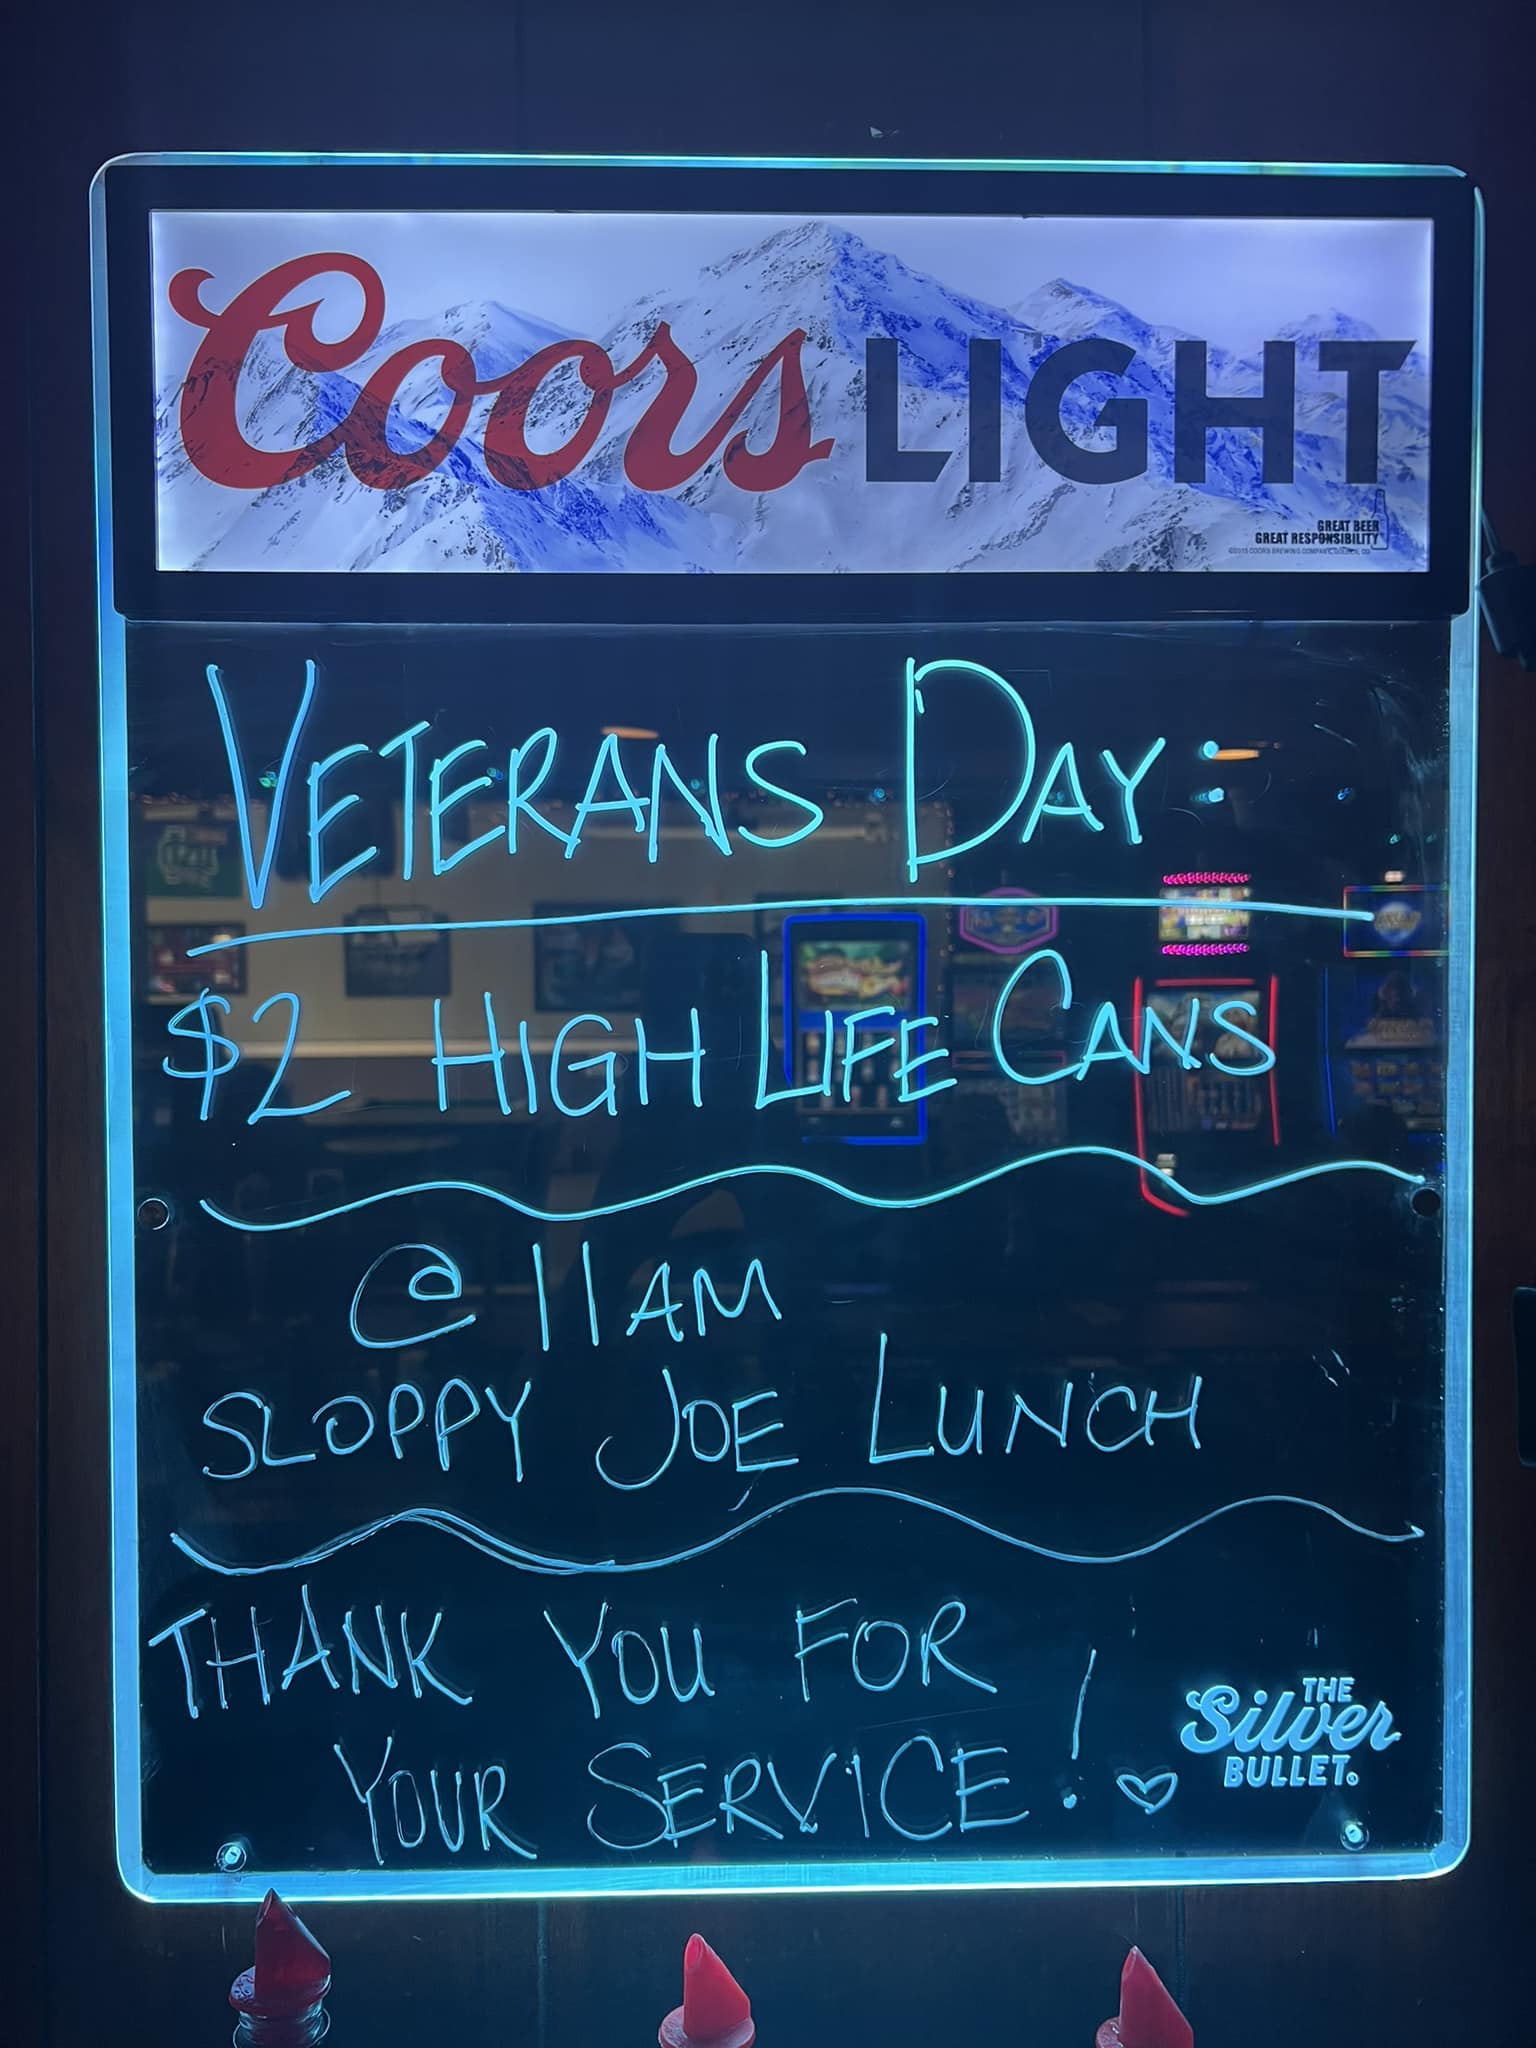 Coors LIGHT
GREAT BEER
GREAT RESPONSIBILITY
VETERANS DAY:
$2 HIGH LIFE CANS
@ 11AM
SLOPPY JOE LUNCH
THANK YOU FOR
YOUR SERVICE! ♡
THE
Silver
BULLET®